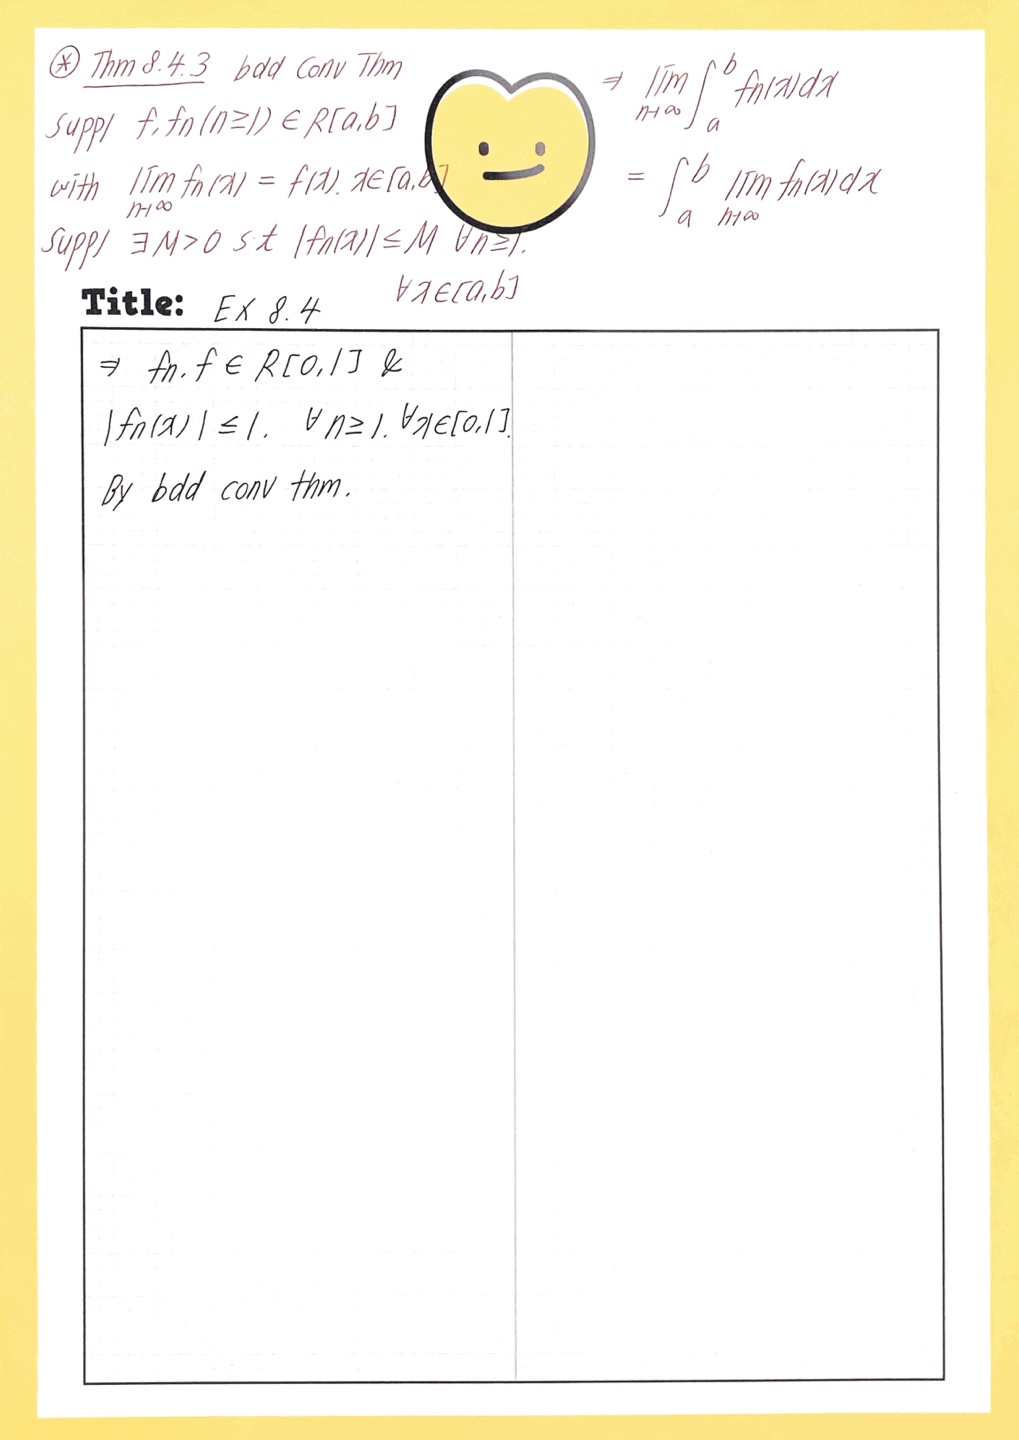 ⊛ Thm 8.4.3 bdd conv Thm
suppl f, fn(n≥1) ∈ R[a,b]
with lim n→∞ fn(x) = f(x). x∈[a,b]
suppl ∃M>0 s.t |fn(x)| ≤ M ∀n≥1.
∀x∈[a,b]
⇒ lim n→∞ ∫a b fn(x)dx
= ∫a b lim n→∞ fn(x)dx
Title: EX 8.4
⇒ fn. f ∈ R[0,1] &
|fn(x)| ≤ 1. ∀n≥1. ∀x∈[0,1].
By bdd conv thm.